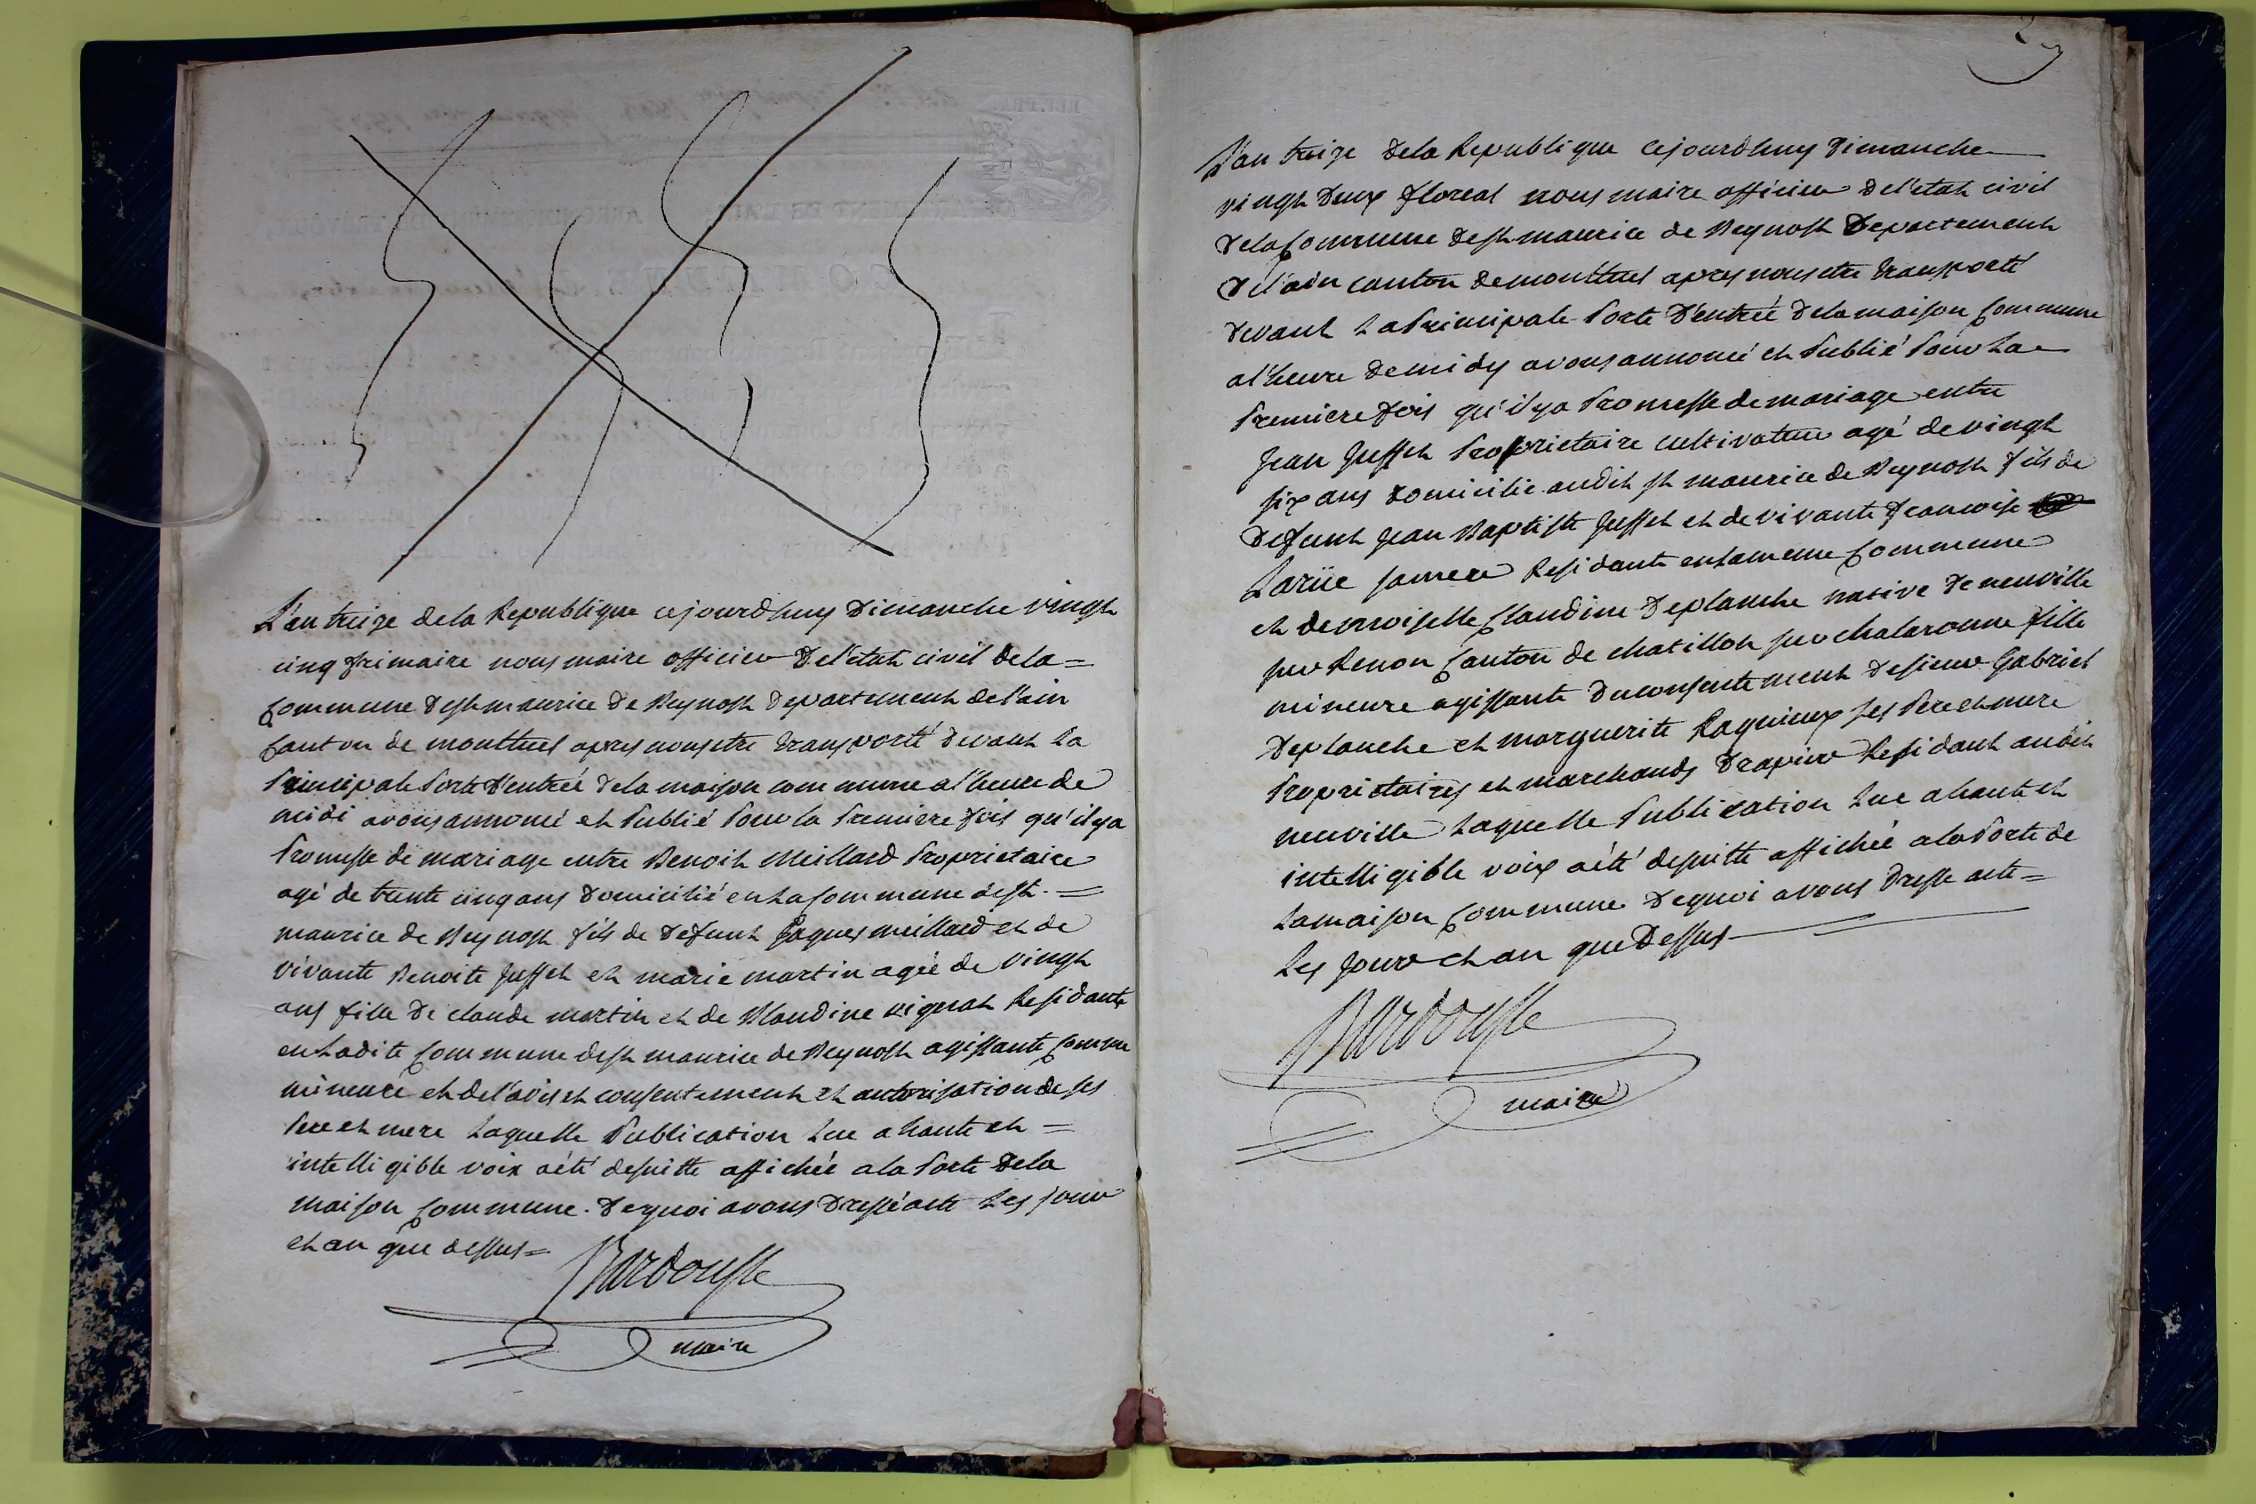 L'an treize de la Republique cejourdhuy Dimanche vingt
cinq frimaire nous maire officier de l'etat civil de la =
Commune de st maurice de Beynost departement de l'ain
Canton de montluel apres nous etre transporté devant la
Principale Porte d'entreé de la maison commune a l'heure de
midi avons annoncé et Publié Pour la Premiere fois qu'il y a
Promesse de mariage entre Benoit Meillard Proprietaire
agé de trente cinq ans domicilié en la Commune de st. =
maurice de Beynost fils de defunt Jaques meillard et de
vivante Benoite Juffet et marie martin ageé de vingt
ans fille de claude martin et de Blandine vignat Residante
en ladite Commune de st maurice de Beynost agissante Comme
mineure et de l'avis et consentement et autorisation de ses
Pere et mere Laquelle Publication Lue a haute et =
intelligible voix a été desuitte affichée a la Porte de la
maison Commune. De quoi avons dressé acte Les jour
et an que dessus =
maire
2
L'an treize de la Republique cejourdhuy Dimanche
vingt deux floreal nous maire officier de l'etat civil
de la Commune de st maurice de Beynost Departement
de l'ain canton de montluel apres nous etre transporté
devant La Principale Porte d'entreé de la maison Commune
a l'heure de midy avons annoncé et Publié Pour La
Premiere fois qu'il y a Promesse de mariage entre
Jean Juffet Proprietaire cultivateur agé de vingt
six ans domicilié audit st maurice de Beynost fils de
defunt Jean Baptiste Juffet et de vivante francoise
Larüe sa mere Residante en la meme Commune
et demoiselle Claudine Deplanche native de neuville
sur Renon Canton de chatillon sur chalaronne fille
mineure agissante du consentement de sieur Gabriel
Deplanche et marguerite Raquieux ses Pere et mere
Proprietaires et marchands drapier Residant audit
neuville Laquelle Publication Lue a haute et
intelligible voix a été desuitte affichée a la Porte de
La maison Commune De quoi avons dresse acte =
Les Jour et an que Dessus
maire